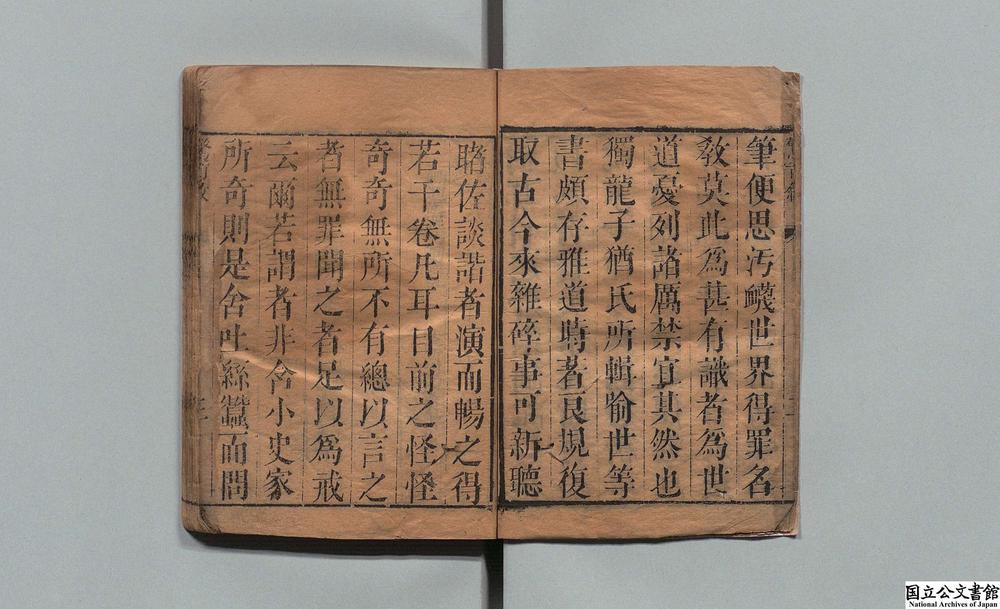 筆便思汚衊世界得罪名
敎莫此為甚有識者為世
道憂列諸厲禁宜其然也
獨龍子猶氏所輯喻世等
書頗存雅道時著良規復
取古今來雜碎事可新聽
睹佐談諧者演而暢之得
若干卷凡耳目前之怪怪
奇奇無所不有總以言之
者無罪聞之者足以為戒
云爾若謂者非舍小史家
所奇則是舍吐絲蠶而問
国立公文書館
National Archives of Japan